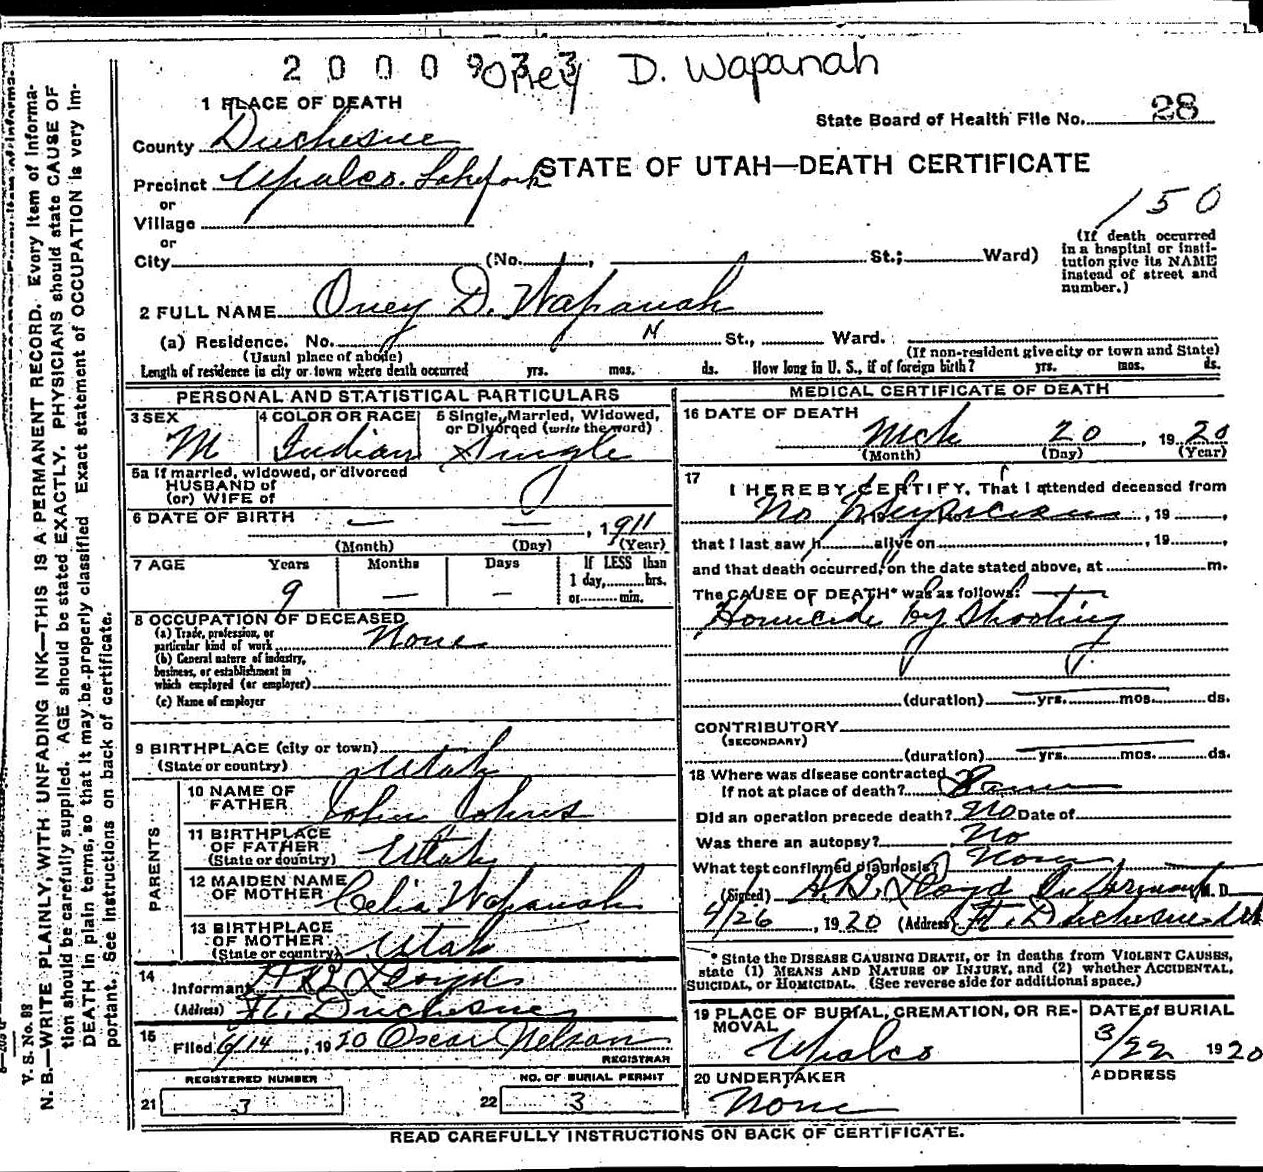 2000933 Oney D. Wapanah
1 PLACE OF DEATH
State Board of Health File No. 28
County Duchesne
STATE OF UTAH—DEATH CERTIFICATE
Precinct Upalco. Lakefork
150
or
Village
or
City (No. , St.; Ward)
(If death occurred in a hospital or insti-
tution give its NAME
instead of street and
number.)
2 FULL NAME Oney D. Wapanah
(a) Residence. No. St., Ward.
(Usual place of abode) (If non-resident give city or town and State)
Length of residence in city or town where death occurred yrs. mos. ds. How long in U. S., if of foreign birth? yrs. mos. ds.
PERSONAL AND STATISTICAL PARTICULARS
3 SEX 4 COLOR OR RACE 5 Single, Married, Widowed,
or Divorced (write the word)
M Indian Single
5a If married, widowed, or divorced
HUSBAND of
(or) WIFE of
6 DATE OF BIRTH — — , 1911
(Month) (Day) (Year)
7 AGE Years Months Days If LESS than
1 day,......hrs.
or.........min.
9 — —
8 OCCUPATION OF DECEASED
(a) Trade, profession, or
particular kind of work None
(b) General nature of industry,
business, or establishment in
which employed (or employer)
(c) Name of employer
9 BIRTHPLACE (city or town)
(State or country) Utah
PARENTS
10 NAME OF
FATHER John Johns
11 BIRTHPLACE
OF FATHER
(State or country) Utah
12 MAIDEN NAME
OF MOTHER Celia Wapanah
13 BIRTHPLACE
OF MOTHER
(State or country) Utah
14
Informant H B Lloyd
(Address) Ft. Duchesne
15
Filed 6/14, 1920 Oscar Nelson
REGISTRAR
REGISTERED NUMBER NO. OF BURIAL PERMIT
21 3 22 3
MEDICAL CERTIFICATE OF DEATH
16 DATE OF DEATH
Mch 20, 1920
(Month) (Day) (Year)
17
I HEREBY CERTIFY, That I attended deceased from
No physician , 19 ,
that I last saw h alive on , 19 ,
and that death occurred, on the date stated above, at m.
The CAUSE OF DEATH* was as follows:
Homicide by Shooting
(duration) yrs. mos. ds.
CONTRIBUTORY
(SECONDARY)
(duration) yrs. mos. ds.
18 Where was disease contracted
If not at place of death?
Did an operation precede death? No Date of
Was there an autopsy? No
What test confirmed diagnosis? None
(Signed) H. B. Lloyd Informant M. D.
4/26, 1920 (Address) Ft. Duchesne Utah
* State the DISEASE CAUSING DEATH, or in deaths from VIOLENT CAUSES,
state (1) MEANS AND NATURE OF INJURY, and (2) whether ACCIDENTAL,
SUICIDAL, or HOMICIDAL. (See reverse side for additional space.)
19 PLACE OF BURIAL, CREMATION, OR RE-
MOVAL DATE OF BURIAL
Upalco 3/22 1920
20 UNDERTAKER ADDRESS
None
READ CAREFULLY INSTRUCTIONS ON BACK OF CERTIFICATE.
V. S. No. 83
N. B.—WRITE PLAINLY, WITH UNFADING INK—THIS IS A PERMANENT RECORD. Every item of informa-
tion should be carefully supplied. AGE should be stated EXACTLY. PHYSICIANS should state CAUSE OF
DEATH in plain terms, so that it may be properly classified. Exact statement of OCCUPATION is very im-
portant. See instructions on back of certificate.